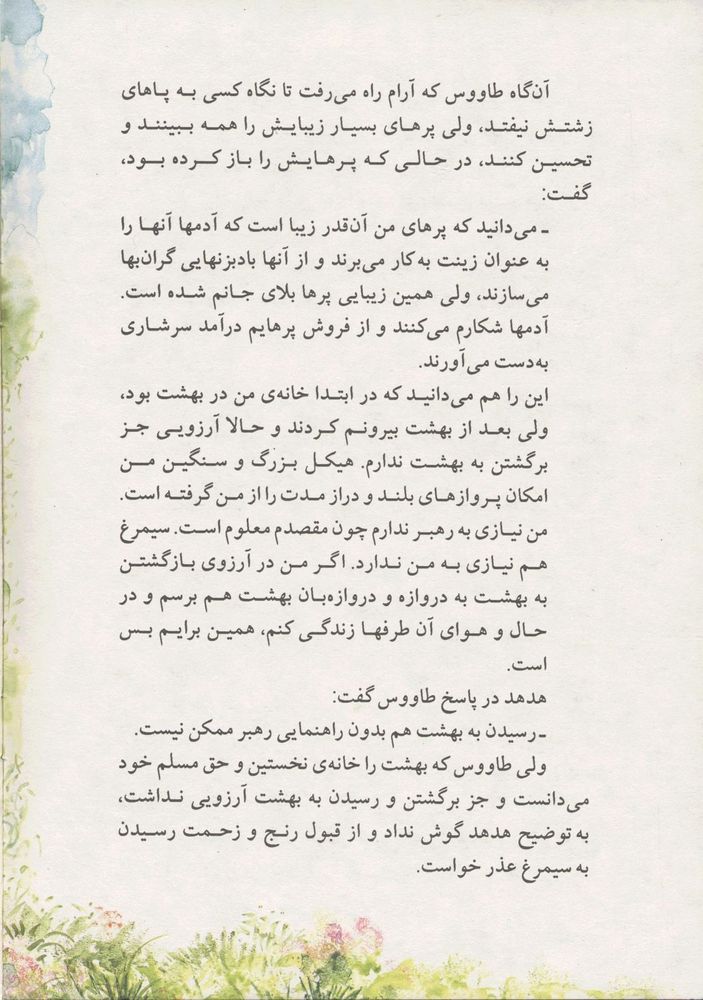 آن‌گاه طاووس که آرام راه می‌رفت تا نگاه کسی به پاهای
زشتش نیفتد، ولی پرهای بسیار زیبایش را همه ببینند و
تحسین کنند، در حالی که پرهایش را باز کرده بود،
گفت:
ـ می‌دانید که پرهای من آن‌قدر زیبا است که آدمها آنها را
به عنوان زینت به‌کار می‌برند و از آنها بادبزنهایی گران‌بها
می‌سازند، ولی همین زیبایی پرها بلای جانم شده است.
آدمها شکارم می‌کنند و از فروش پرهایم درآمد سرشاری
به‌دست می‌آورند.
این را هم می‌دانید که در ابتدا خانه‌ی من در بهشت بود،
ولی بعد از بهشت بیرونم کردند و حالا آرزویی جز
برگشتن به بهشت ندارم. هیکل بزرگ و سنگین من
امکان پروازهای بلند و دراز مدت را از من گرفته است.
من نیازی به رهبر ندارم چون مقصدم معلوم است. سیمرغ
هم نیازی به من ندارد. اگر من در آرزوی بازگشتن
به بهشت به دروازه و دروازه‌بان بهشت هم برسم و در
حال و هوای آن طرفها زندگی کنم، همین برایم بس
است.
هدهد در پاسخ طاووس گفت:
ـ رسیدن به بهشت هم بدون راهنمایی رهبر ممکن نیست.
ولی طاووس که بهشت را خانه‌ی نخستین و حق مسلم خود
می‌دانست و جز برگشتن و رسیدن به بهشت آرزویی نداشت،
به توضیح هدهد گوش نداد و از قبول رنج و زحمت رسیدن
به سیمرغ عذر خواست.